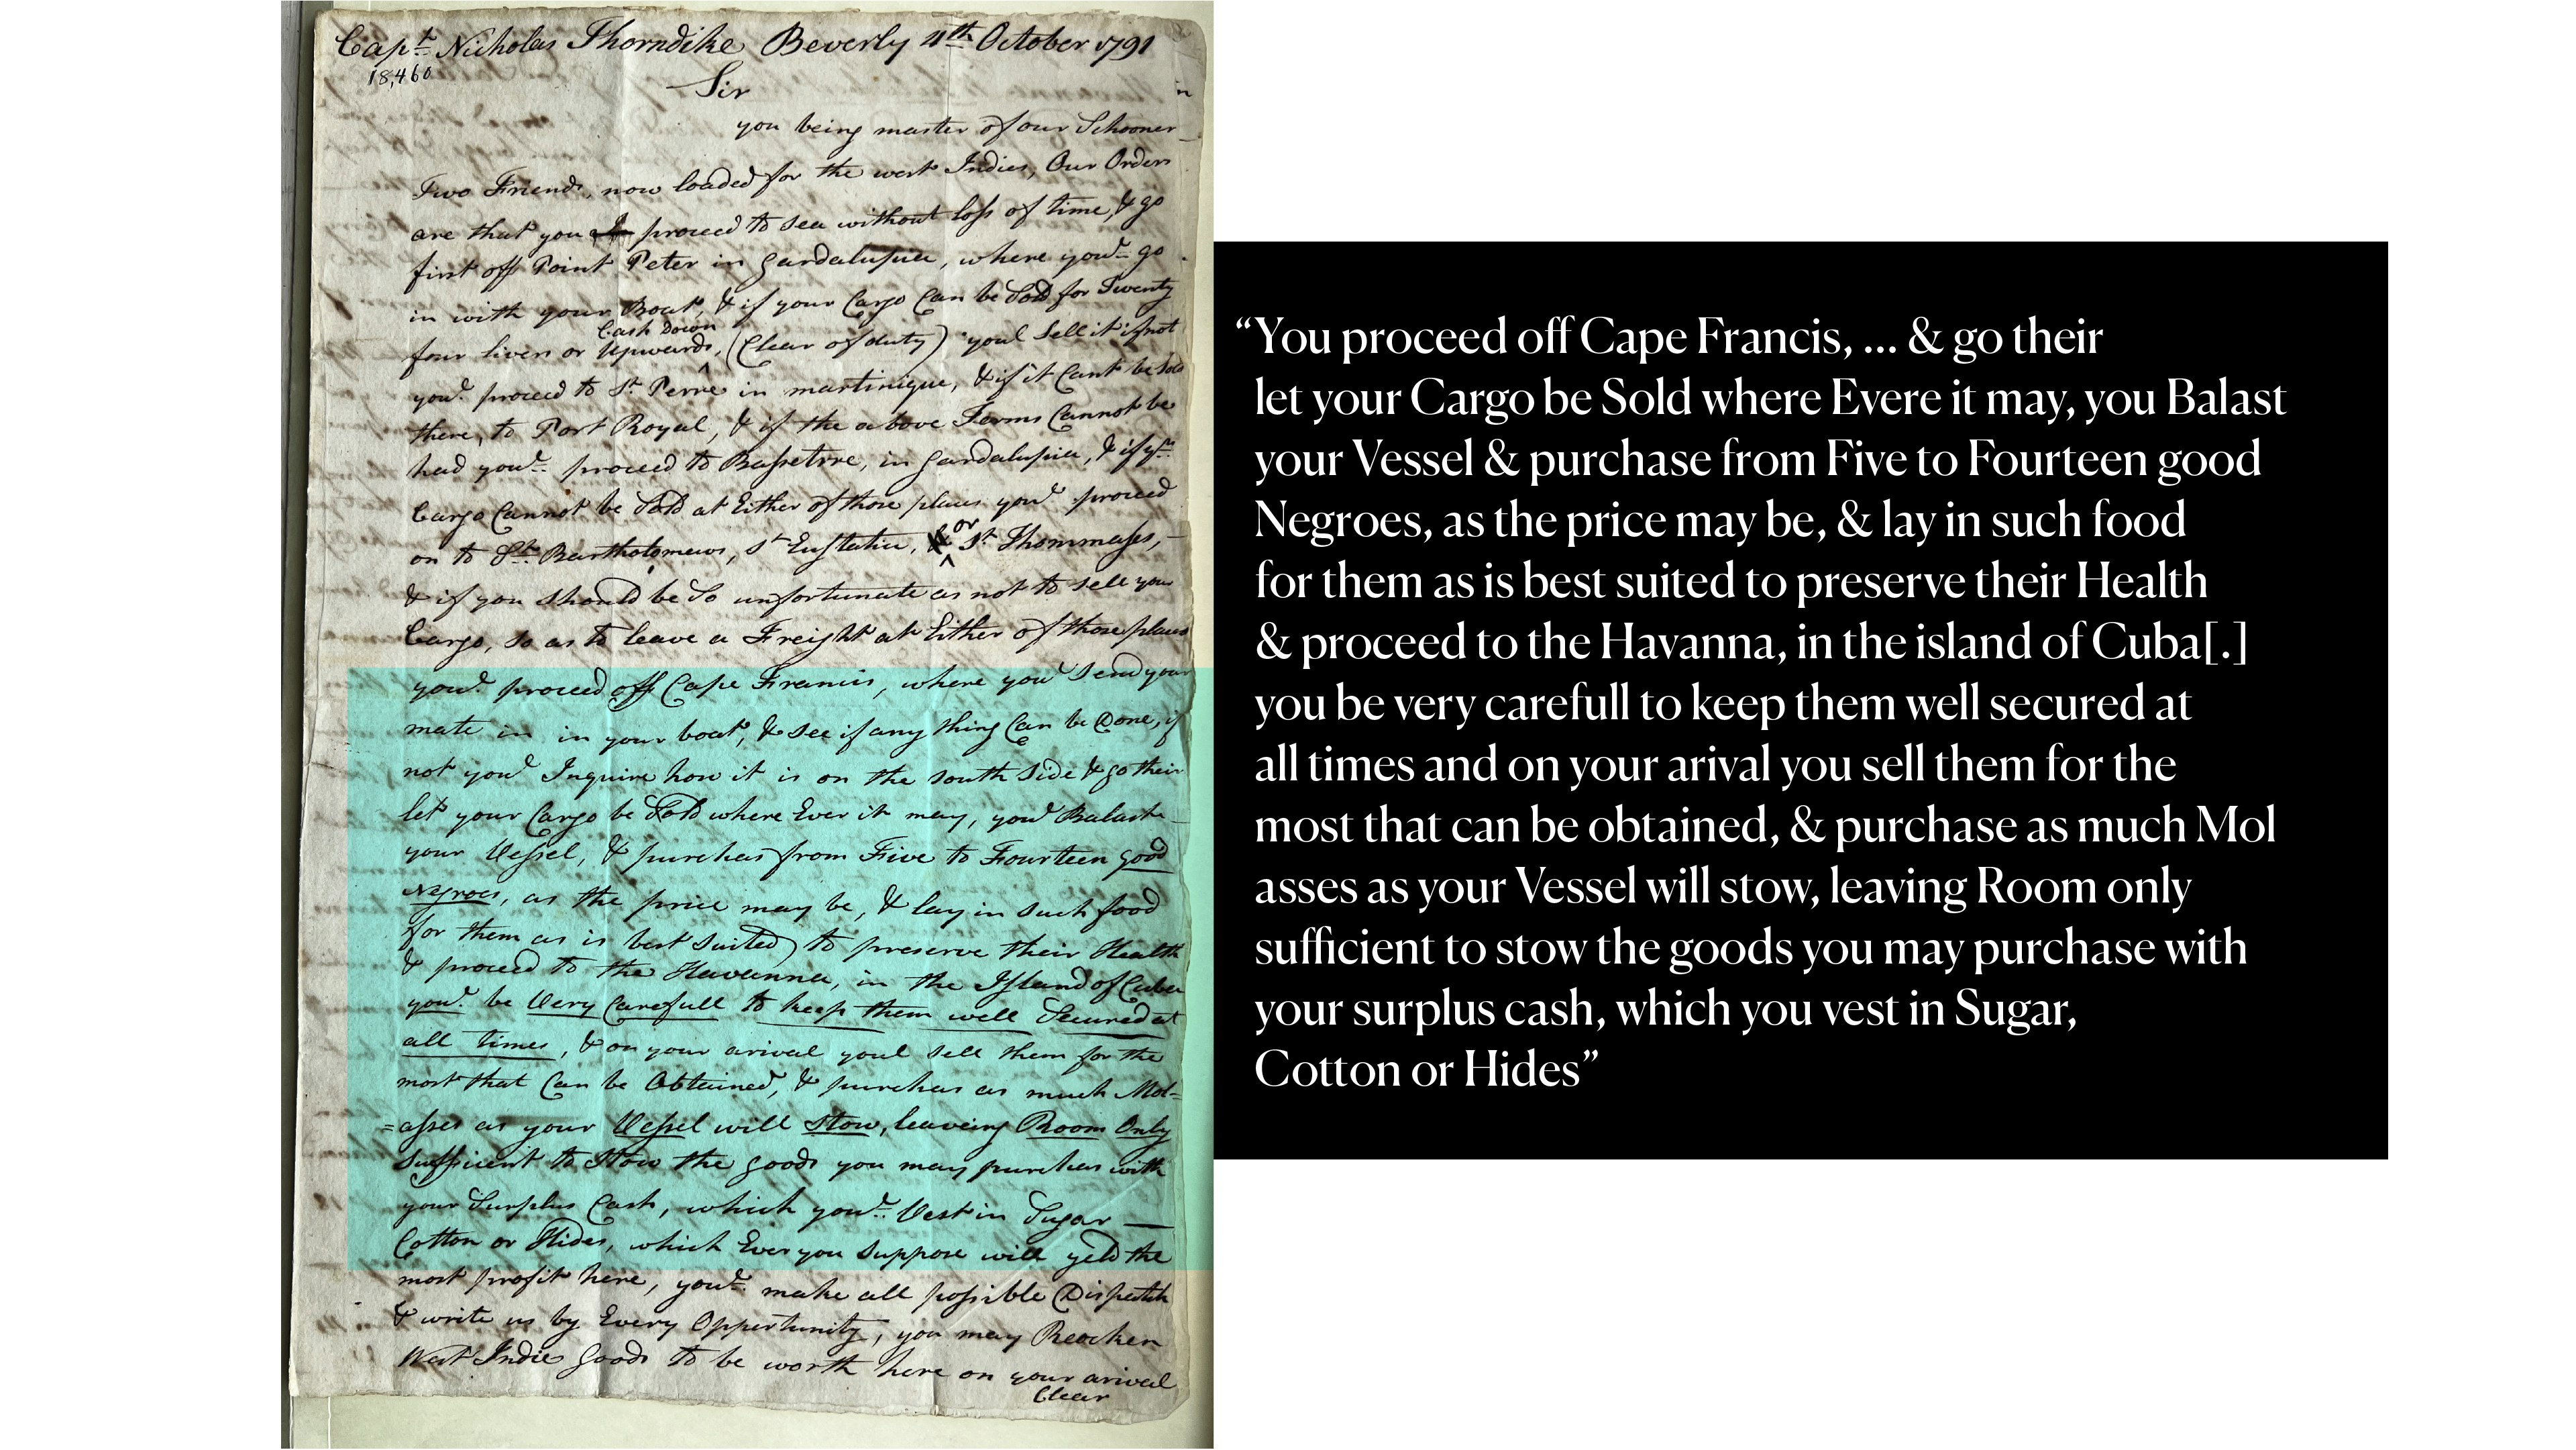 Capt. Nicholas Thorndike Beverly 4th October 1791
18,460
Sir
you being master of our Schooner
Two Friends, now loaded for the west Indies, Our Orders
are that you proceed to sea without loss of time, & go
first off Point Peter in Gardalupia, where youl go
in with your Boat, & if your Cargo Can be Sold for Twenty
Cash Down
four livers or Upwards, (Clear of duty) youl Sell it if not
youl proceed to St. Perre in martinique, & if it Cant be Sold
there, to Port Royal, & if the above Terms Cannot be
had youl proceed to Bassetrre, in Gardalupia, & if yr.
Cargo Cannot be Sold at Either of those places youl proceed
on to St. Bartholomews, St Eustatia, or St Thommases,
& if you should be So unfortunate as not to sell your
Cargo, so as to leave a Freight at Either of those places
youl proceed off Cape Francis, where youl Send your
mate in in your boat, & see if any thing Can be Done, if
not youl Inquire how it is on the south Side & go their
let your Cargo be Sold where Ever it may, youl Balast
your Vessel, & purchas from Five to Fourteen good
Negroes, as the price may be, & lay in such food
for them as is best Suited to preserve their Health
& proceed to the Havanna, in the Island of Cuba
youl be Very Carefull to keep them well Secured at
all times, & on your arival youl sell them for the
most that Can be Obtained, & purchas as much Mol=
=asses as your Vessel will Stow, leaveing Room Only
sufficient to Stow the goods you may purchas with
your Surplus Cash, which youl Vest in Sugar
Cotton or Hides, which Ever you suppose will yeld the
most profit here, youl make all possible Dispatch
& write us by Every Oppertunity, you may Reacken
West Indie Goods to be worth here on your arival
Clear
“You proceed off Cape Francis, ... & go their
let your Cargo be Sold where Evere it may, you Balast
your Vessel & purchase from Five to Fourteen good
Negroes, as the price may be, & lay in such food
for them as is best suited to preserve their Health
& proceed to the Havanna, in the island of Cuba[.]
you be very carefull to keep them well secured at
all times and on your arival you sell them for the
most that can be obtained, & purchase as much Mol
asses as your Vessel will stow, leaving Room only
sufficient to stow the goods you may purchase with
your surplus cash, which you vest in Sugar,
Cotton or Hides”